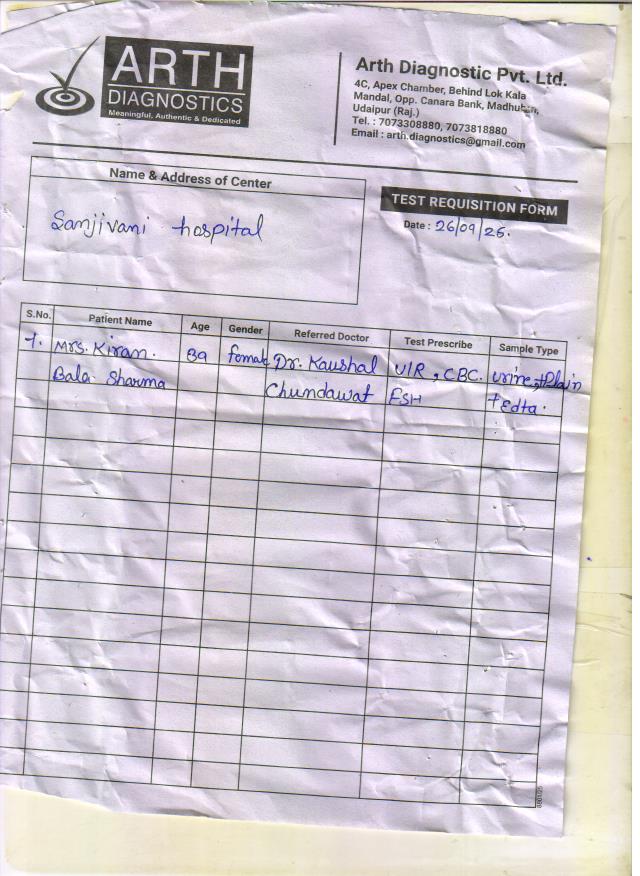 ARTH
DIAGNOSTICS
Meaningful, Authentic & Dedicated
Arth Diagnostic Pvt. Ltd.
4C, Apex Chamber, Behind Lok Kala
Mandal, Opp. Canara Bank, Madhuban,
Udaipur (Raj.)
Tel. : 7073308880, 7073818880
Email : arth.diagnostics@gmail.com
Name & Address of Center
Sanjivani hospital
TEST REQUISITION FORM
Date : 26/09/25.
S.No. Patient Name Age Gender Referred Doctor Test Prescribe Sample Type
1. Mrs. Kiran. 39 female Dr. Kaushal U/R, CBC. urine, +Plain
Bala Sharma Chundawat FSH +Edta.